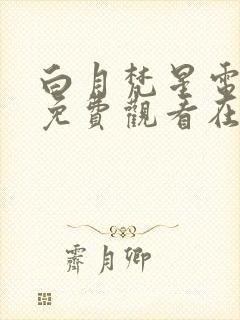 白月梵星電
免費觀看在
霽月卿